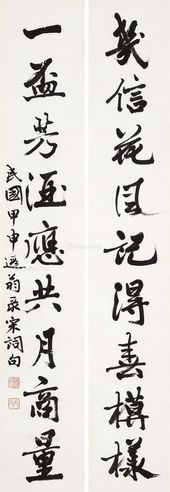 幾信花風記得春模樣
一盃芳酒應共月商量
民國甲申遐翁录宋詞句